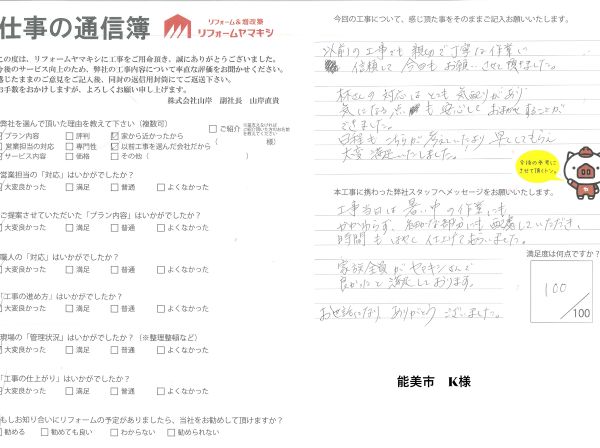 仕事の通信簿
リフォーム&増改築
リフォームヤマキシ
この度は、リフォームヤマキシに工事をご用命頂き、誠にありがとうございました。
今後のサービス向上のため、弊社の工事内容について率直な評価をお聞かせください。
感じたままのご意見をご記入後、同封の返信用封筒にてご返送下さい。
お手数をおかけしますが、よろしくお願い申し上げます。
株式会社山岸 副社長 山岸直貴
弊社を選んで頂いた理由を教えて下さい(複数可)
プラン内容 評判 家から近かったから
営業担当の対応 専門性 以前工事を選んだ会社だから
サービス内容 価格 その他(
ご紹介
様)
営業担当の「対応」はいかがでしたか?
大変良かった 満足 普通 よくなかった
ご提案させていただいた「プラン内容」はいかがでしたか?
大変良かった 満足 普通 よくなかった
職人の「対応」はいかがでしたか?
大変良かった 満足 普通 よくなかった
「工事の進め方」はいかがでしたか?
大変良かった 満足 普通 よくなかった
現場の「管理状況」はいかがでしたか?(※整理整頓など)
大変良かった 満足 普通 よくなかった
「工事の仕上がり」はいかがでしたか?
大変良かった 満足 普通 よくなかった
もしお知り合いにリフォームの予定がありましたら、当社をお勧めして頂けますか?
勧める 勧めても良い わからない 勧められない
今回の工事について、感じた事をそのままご記入お願いいたします。
以前の工事でも親切で丁寧な作業に
信頼して今回もお願いさせて頂きました。
林さんの対応はとても気配りがあり
気になる点も安心しておまかせすることが
できました。
日程もこちらが考えしたより早くしてもらえ
大変満足いたしました!
今後の参考に
させて頂くトン。
本工事に携わった弊社スタッフへメッセージをお願いいたします。
工事当日は暑い中の作業にも
かかわらず、細かな部分にも配慮していただき、
時間もはやく仕上げてもらいました。
家族全員がヤマキシさんで
良かったと満足しております。
お世話になり ありがとうございました。
満足度は何点ですか?
100
/100
能美市 K様